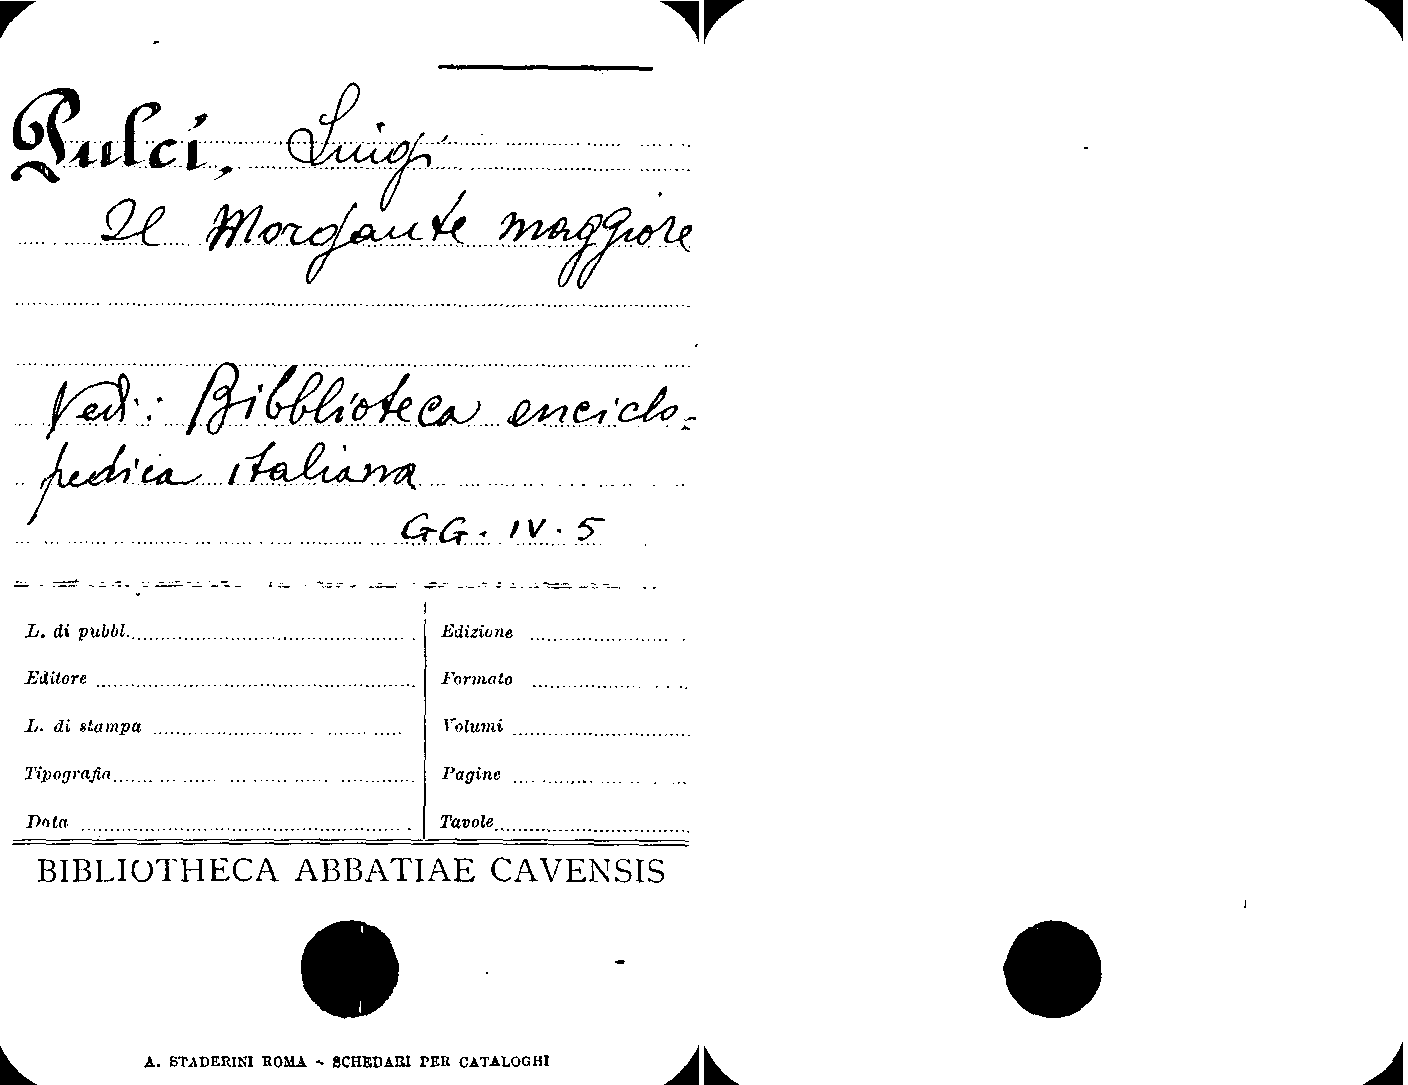 Pulci, Luigi
Il Morgante maggiore
Vedi: Bibblioteca enciclo=
pedica italiana
GG. IV. 5
L. di pubbl.
Edizione
Editore
Formato
L. di stampa
Volumi
Tipografia
Pagine
Data
Tavole
BIBLIOTHECA ABBATIAE CAVENSIS
A. STADERINI ROMA - SCHEDARI PER CATALOGHI